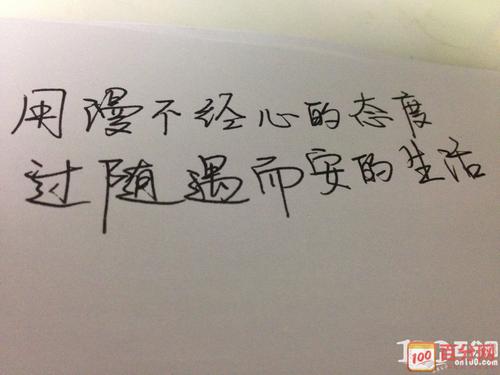 用漫不经心的态度
过随遇而安的生活
100
百分网
on100.com